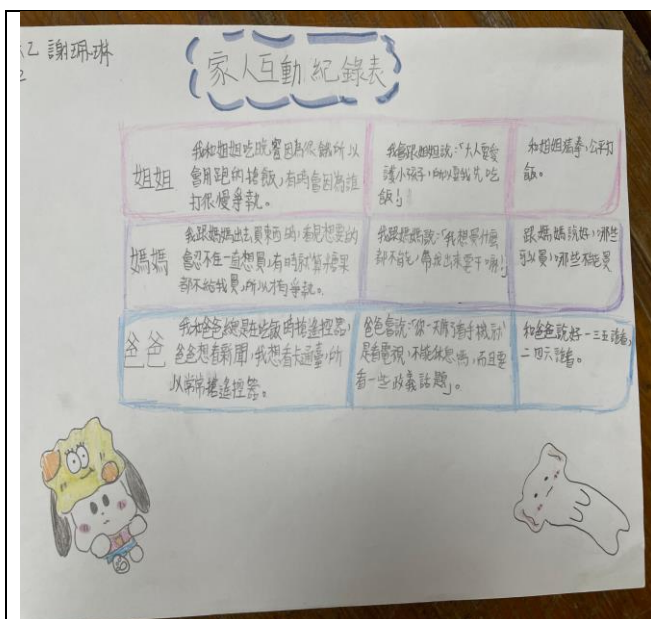 謝珮琳
2
家人互動紀錄表
姐姐
我和姐姐吃晚餐因為很餓所以
會用跑的搶飯,有時會因為誰
打很慢爭執。
我會跟姐姐說:「大人要愛
護小孩子,所以要我先吃
飯!」
和姐姐猜拳,公平打
飯。
媽媽
我跟媽媽出去買東西時,看見想要的
會忍不住一直想買,有時就算糖果
都不給我買,所以才有爭執。
我跟媽媽說:「我想買什麼
都不能,帶我出來要干嘛!」
跟媽媽說好,哪些
可以買,哪些不能買
爸爸
我和爸爸總是在吃飯時搶遙控器,
爸爸想看新聞,我想看卡通臺,所
以常常搶遙控器。
爸爸會說:「你一天看手機就
是看電視,不能休息嗎,而且要
看一些政義話題」。
和爸爸說好一三五誰看,
二四六誰看。